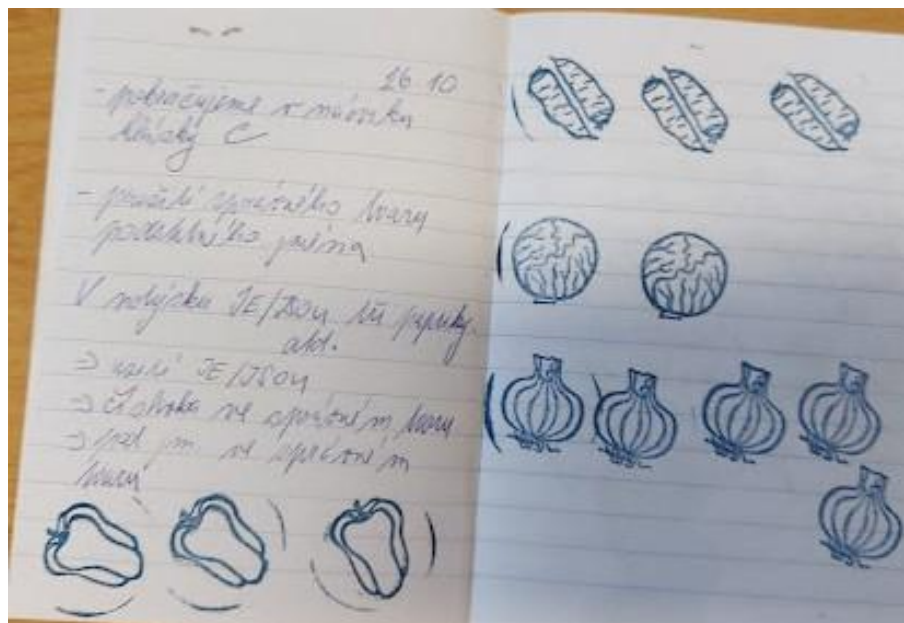 26 10
- pokračujeme v nácviku
hlásky C
- použití správného tvaru
podstatného jména
V nákjsku JE/JSOU tři papriky.
atd.
⇒ užití JE/JSOU
⇒ číslovka ve správném tvaru
⇒ pod jm ve správném
tvaru